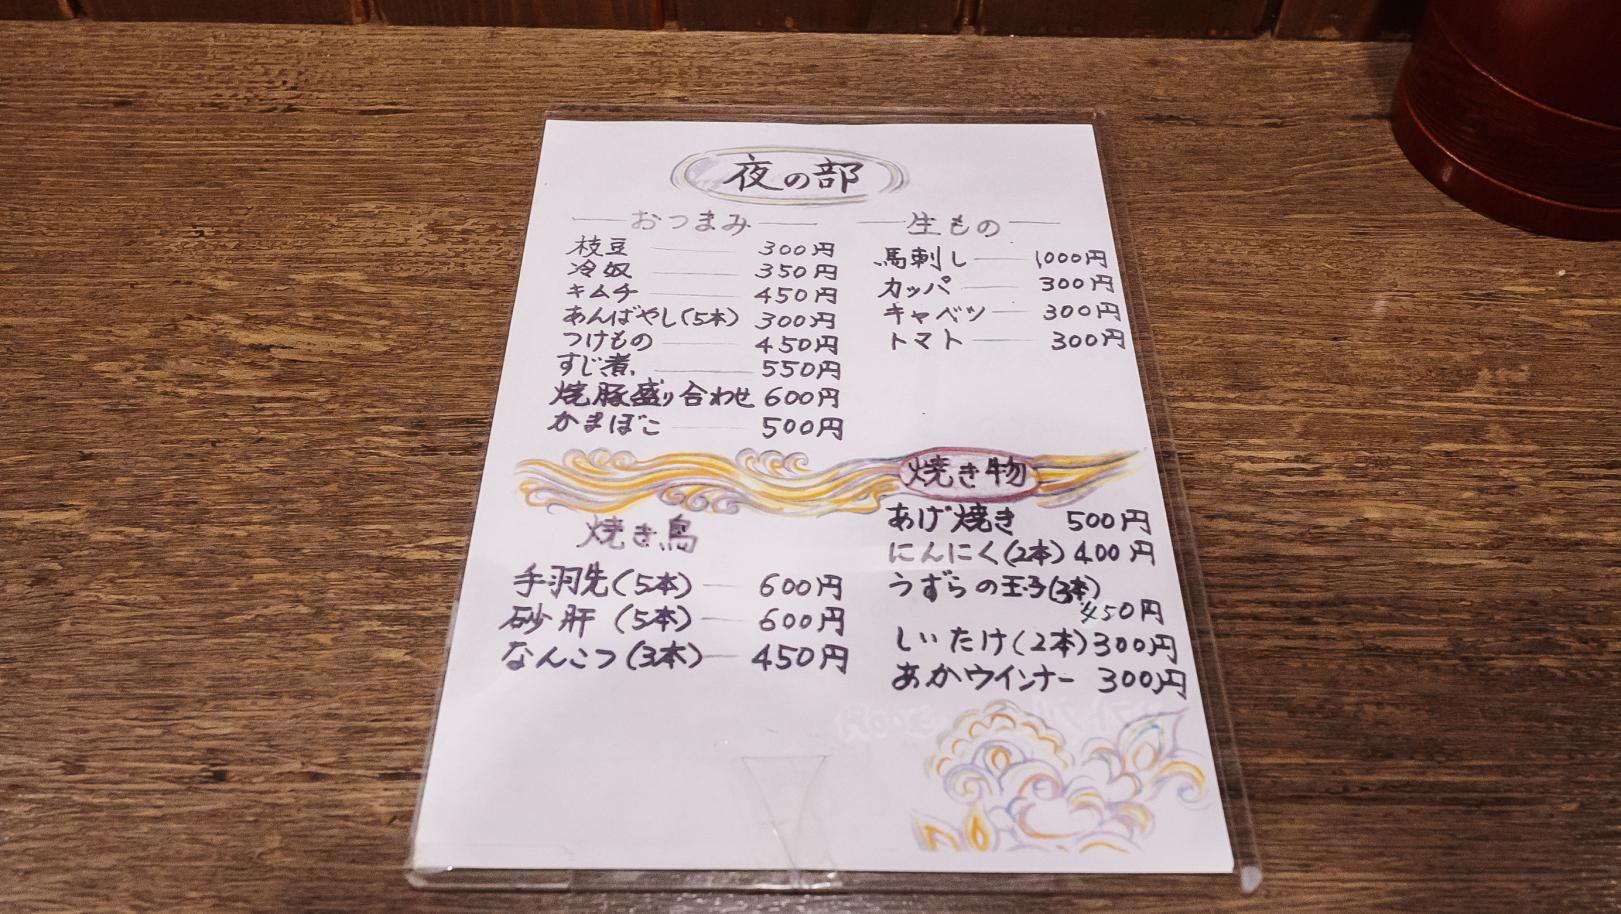 夜の部
おつまみ
枝豆 300円
冷奴 350円
キムチ 450円
あんばやし(5本) 300円
つけもの 450円
すじ煮 550円
焼豚盛り合わせ 600円
かまぼこ 500円
生もの
馬刺し 1000円
カッパ 300円
キャベツ 300円
トマト 300円
焼き鳥
手羽先(5本) 600円
砂肝(5本) 600円
なんこつ(3本) 450円
焼き物
あげ焼き 500円
にんにく(2本) 400円
うずらの玉子(3本)
450円
しいたけ(2本) 300円
あかウインナー 300円